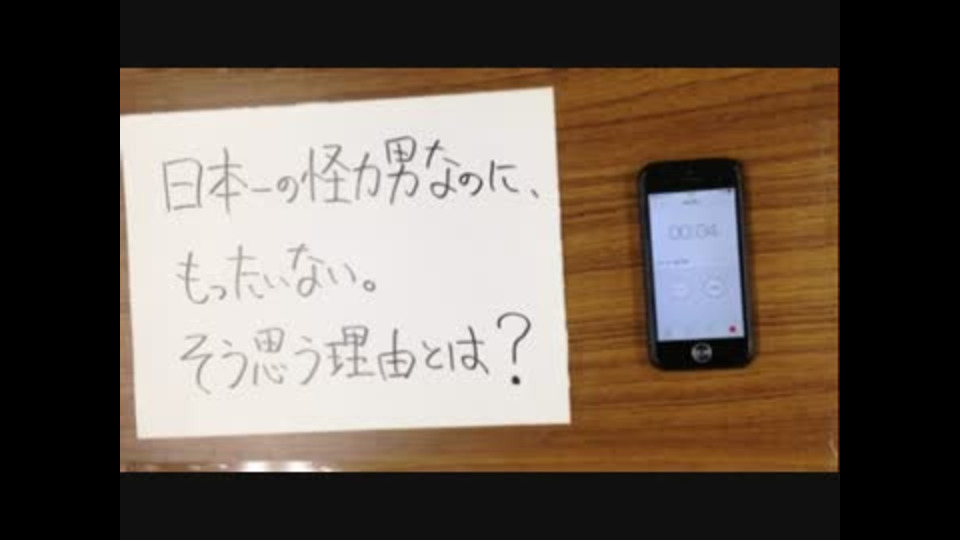 日本一の怪力男なのに、
もったいない。
そう思う理由とは？
00:04